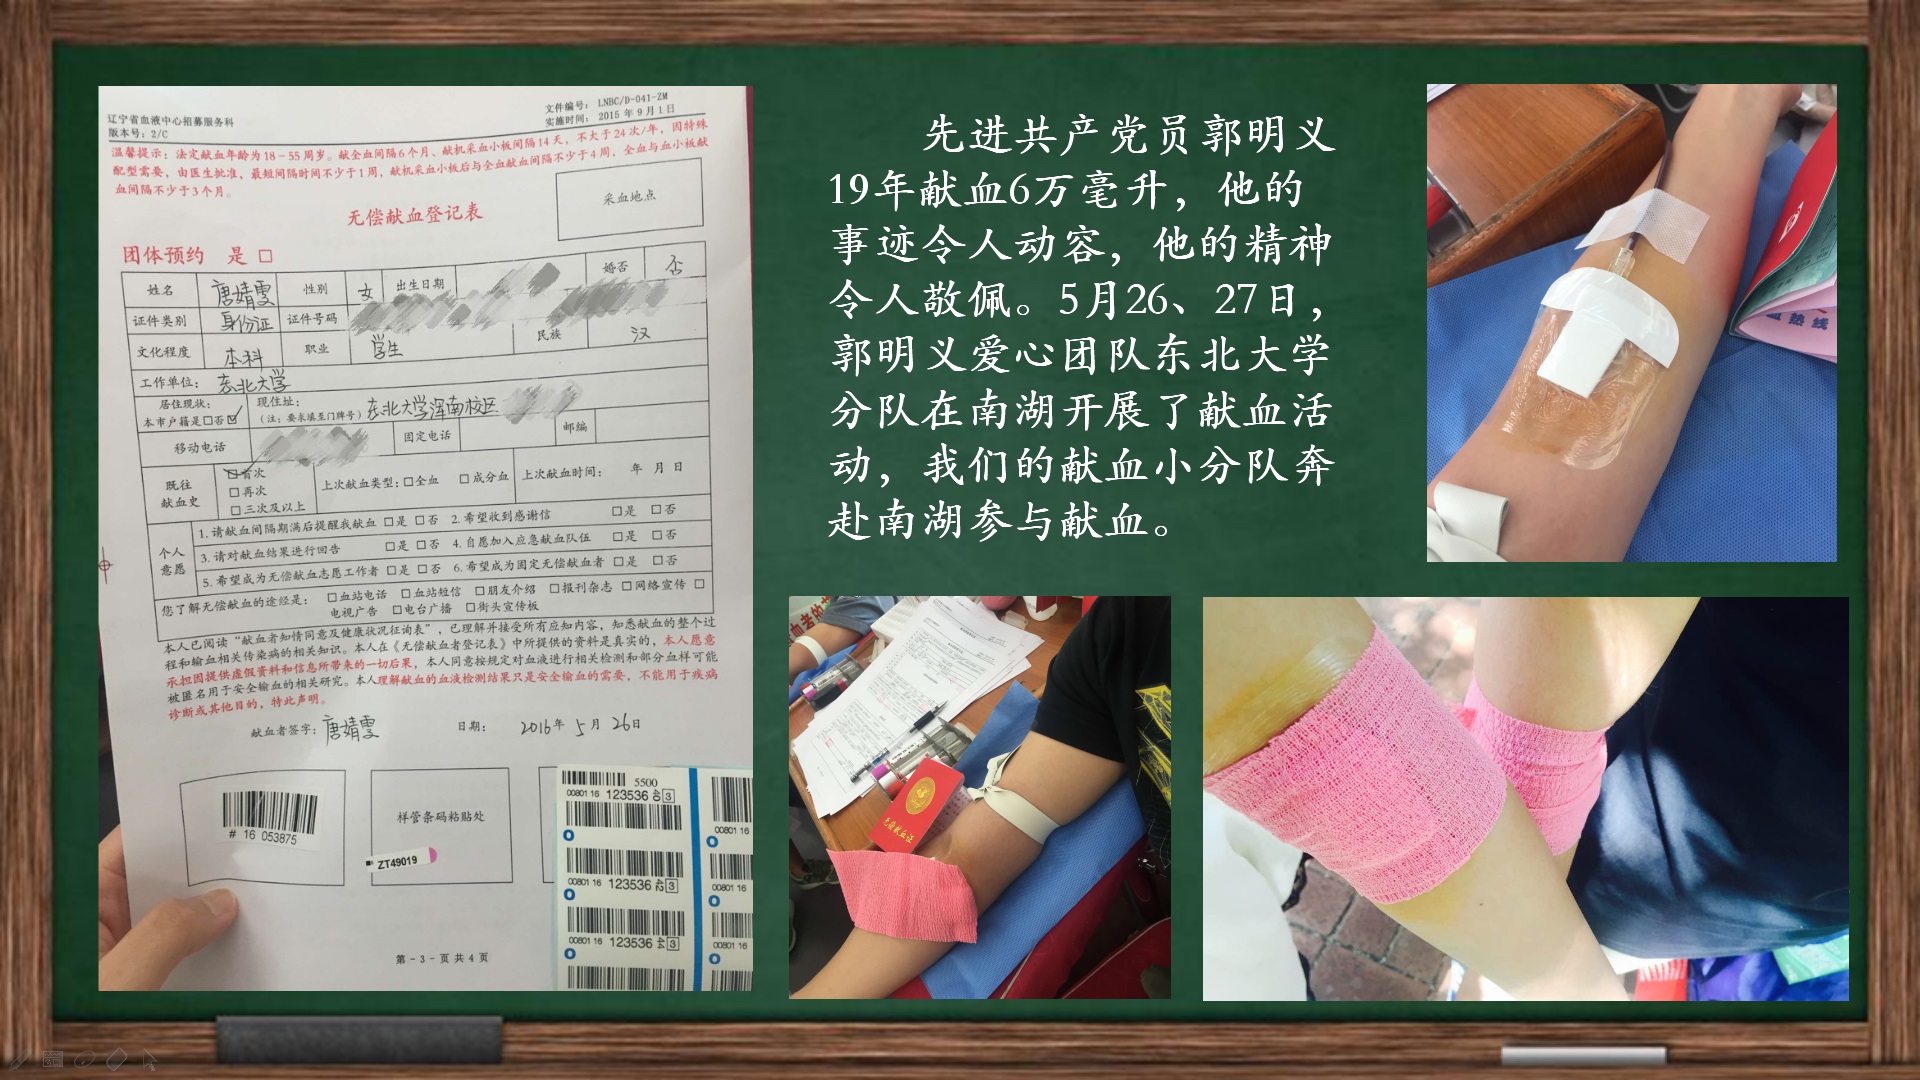 辽宁省血液中心招募服务科
版本号：2/C
文件编号： LNBC/D-041-ZM
实施时间： 2015 年 9 月 1 日
温馨提示：法定献血年龄为 18－55 周岁。献全血间隔 6 个月、献机采血小板间隔 14 天，不大于 24 次/年，因特殊
配型需要，由医生批准，最短间隔时间不少于 1 周，献机采血小板后与全血献血间隔不少于 4 周，全血与血小板献
血间隔不少于 3 个月。
采血地点
无偿献血登记表
团体预约 是 □
姓名 唐婧雯 性别 女 出生日期 婚否 否
证件类别 身份证 证件号码
文化程度 本科 职业 学生 民族 汉
工作单位： 东北大学
居住现状：
本市户籍是□否☑
现住址：
（注：要求填至门牌号）东北大学浑南校区
移动电话 固定电话 邮编
既往
献血史
☑首次
□再次
□三次及以上
上次献血类型：□全血 □成分血 上次献血时间： 年 月 日
个人
意愿
1. 请献血间隔期满后提醒我献血 □是 □否 2. 希望收到感谢信 □是 □否
3. 请对献血结果进行回告 □是 □否 4. 自愿加入应急献血队伍 □是 □否
5. 希望成为无偿献血志愿工作者 □是 □否 6. 希望成为固定无偿献血者 □是 □否
您了解无偿献血的途经是： □血站电话 □血站短信 □朋友介绍 □报刊杂志 □网络宣传 □
电视广告 □电台广播 □街头宣传板
本人已阅读“献血者知情同意及健康状况征询表”，已理解并接受所有应知内容，知悉献血的整个过
程和输血相关传染病的相关知识。本人在《无偿献血者登记表》中所提供的资料是真实的，本人愿意
承担因提供虚假资料和信息所带来的一切后果，本人同意按规定对血液进行相关检测和部分血样可能
被匿名用于安全输血的相关研究。本人理解献血的血液检测结果只是安全输血的需要，不能用于疾病
诊断或其他目的，特此声明。
献血者签字：唐婧雯 日期： 2016年 5月 26日
# 16 053875
样管条码粘贴处
ZT49019
5500
00801 16 123536 3
00801 16
00801 16 123536 3
00801 16
00801 16 123536 3
00801 16
第 - 3 - 页 共 4 页
先进共产党员郭明义
19年献血6万毫升，他的
事迹令人动容，他的精神
令人敬佩。5月26、27日，
郭明义爱心团队东北大学
分队在南湖开展了献血活
动，我们的献血小分队奔
赴南湖参与献血。
血热线
无偿献血证